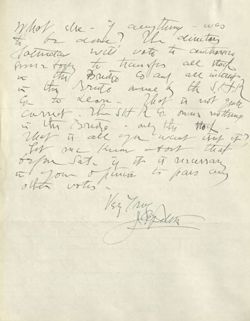 What else - if anything - was
to be done? The directors
Saturday will vote to authorize
to transfer all stock
in the Bridge Co and all interest
in the Bridge owned by the S.H.R.
Co to Leon. That is not quite
correct. The S.H.R. Co owns nothing
in the Bridge - only the stock.
that is all you want isn't it?
Let me know about that
before Sat. if it is necessary
in your opinion to pass any
other votes -
Very truly